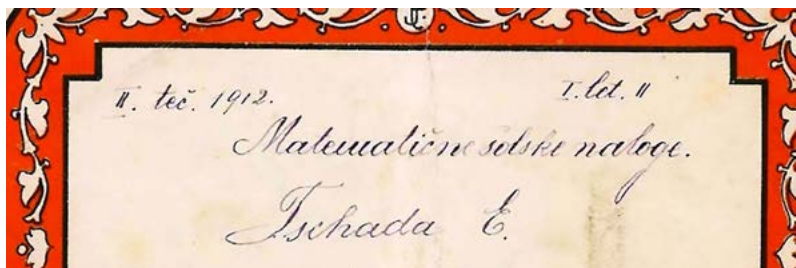 II. teč. 1912. I. let. II
Matematične šolske naloge.
Tschada E.